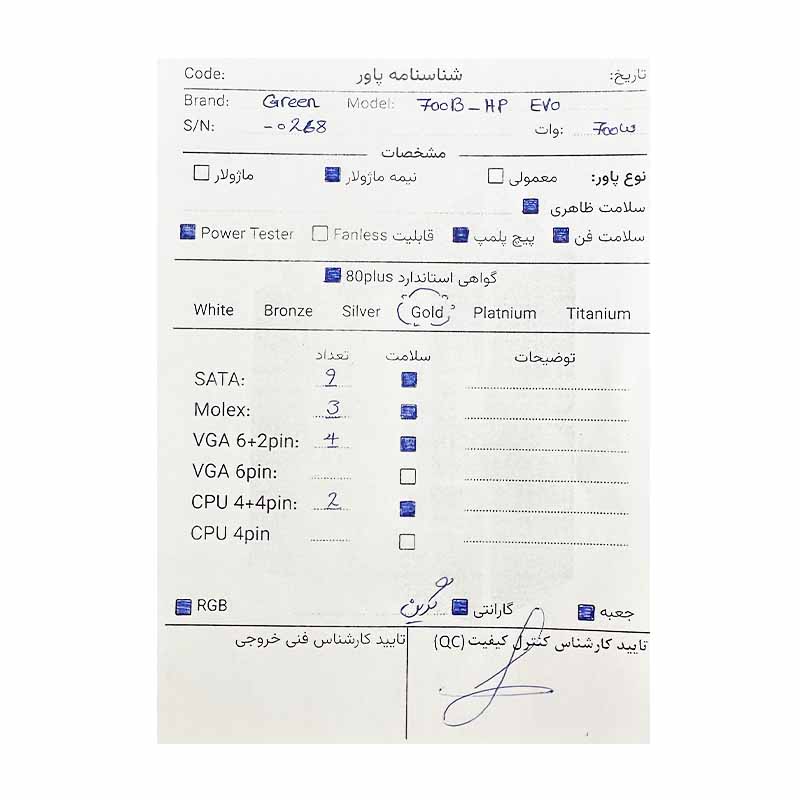 Code: شناسنامه پاور تاریخ:
Brand: Green Model: 700B-HP EVO
S/N: -0268 وات: 700w
مشخصات
نوع پاور: معمولی نیمه ماژولار ماژولار
سلامت ظاهری
سلامت فن پیچ پلمپ قابلیت Fanless Power Tester
گواهی استاندارد 80plus
White Bronze Silver Gold Platnium Titanium
تعداد سلامت توضیحات
SATA: 9
Molex: 3
VGA 6+2pin: 4
VGA 6pin:
CPU 4+4pin: 2
CPU 4pin
جعبه گارانتی گرین RGB
تایید کارشناس کنترل کیفیت (QC) تایید کارشناس فنی خروجی